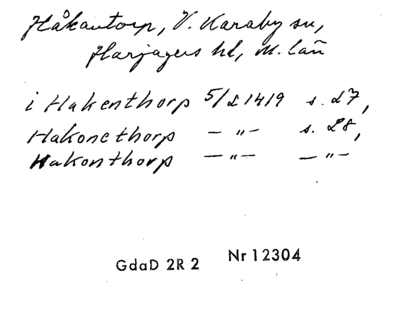 Håkantorp, V. Karaby sn,
Harjagers hd, M. län
i Hakenthorp 5/2 1419 s. 27,
Hakonethorp — " — s. 28,
Hakonthorp — " — — " —
GdaD 2R 2 Nr 12304